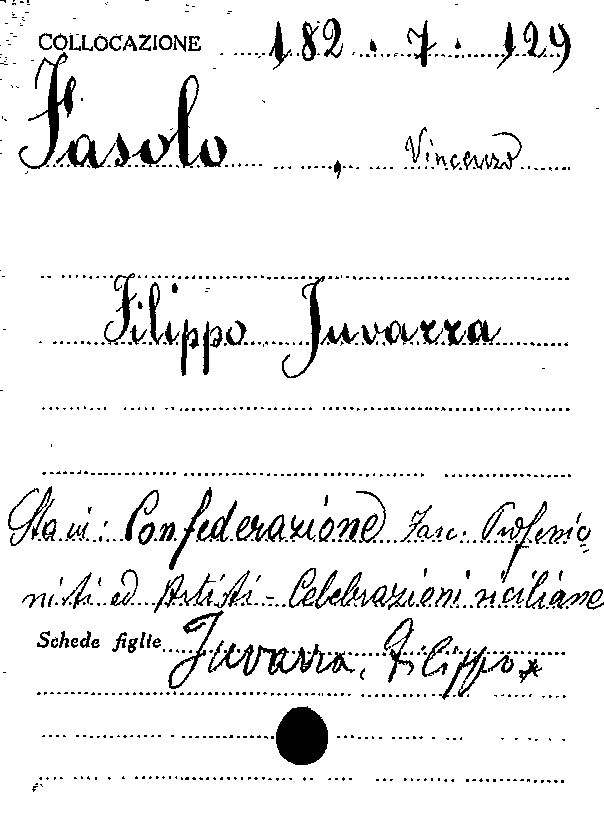 COLLOCAZIONE 182.7.129
Fasolo, Vincenzo
Filippo Juvarra
Sta in: Confederazione Fasc. Professio=
nisti ed Artisti - Celebrazioni siciliane
Schede figlie Juvarra, Filippo*